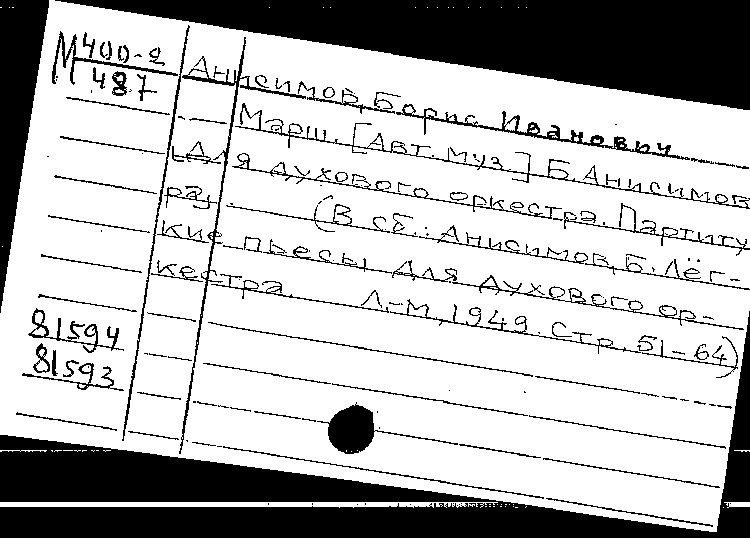 М 400-2
487
Анисимов, Борис Иванович
Марш. [Авт. муз.] Б. Анисимов
[Для духового оркестра. Партиту
ра].
(В сб.: Анисимов, Б. Лёг-
кие пьесы для духового ор-
кестра. Л.-М, 1949. Стр. 51-64)
81594
81593